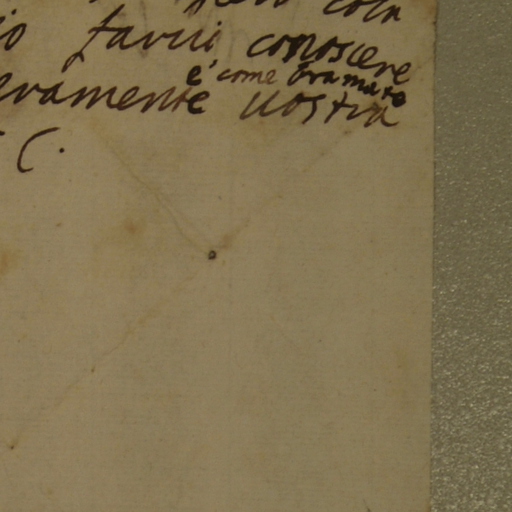 cosa
io farvi conoscere
e' come bramate
eramente vostra
C.